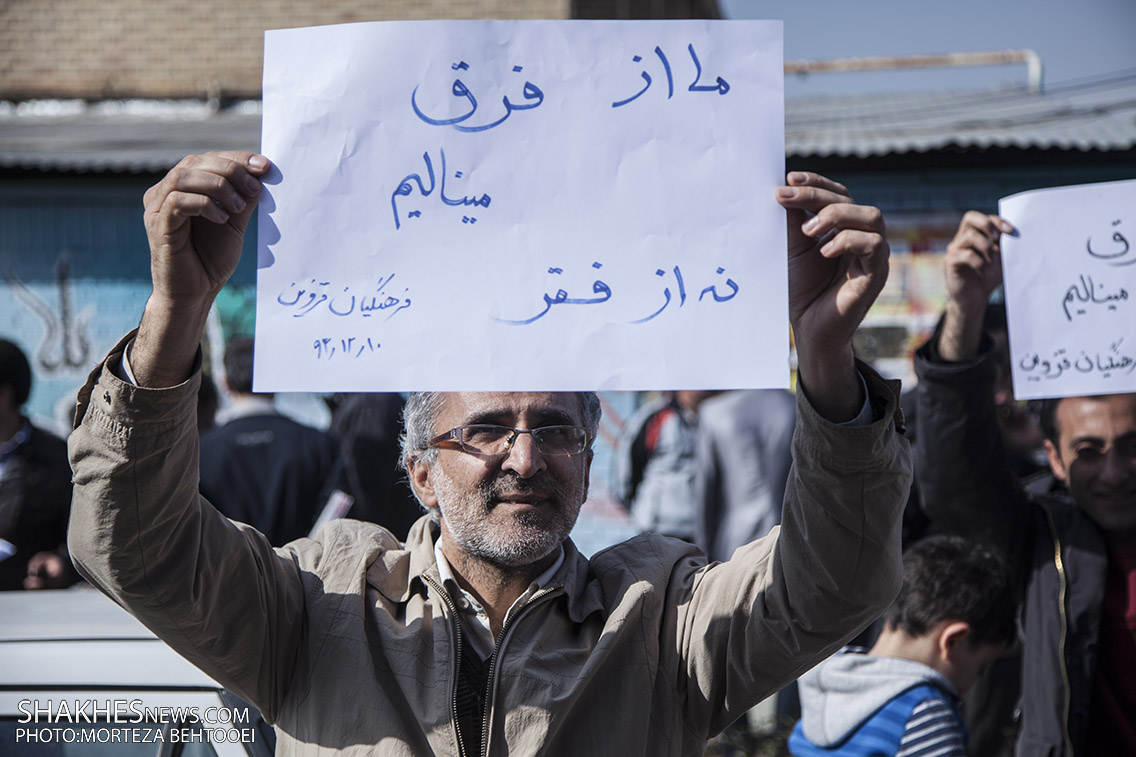 ما از فرق
مینالیم
نه از فقر
فرهنگیان قزوین
۹۳٫۱۲٫۱۰
مینالیم
SHAKHESNEWS.COM
PHOTO:MORTEZA BEHTOOEI